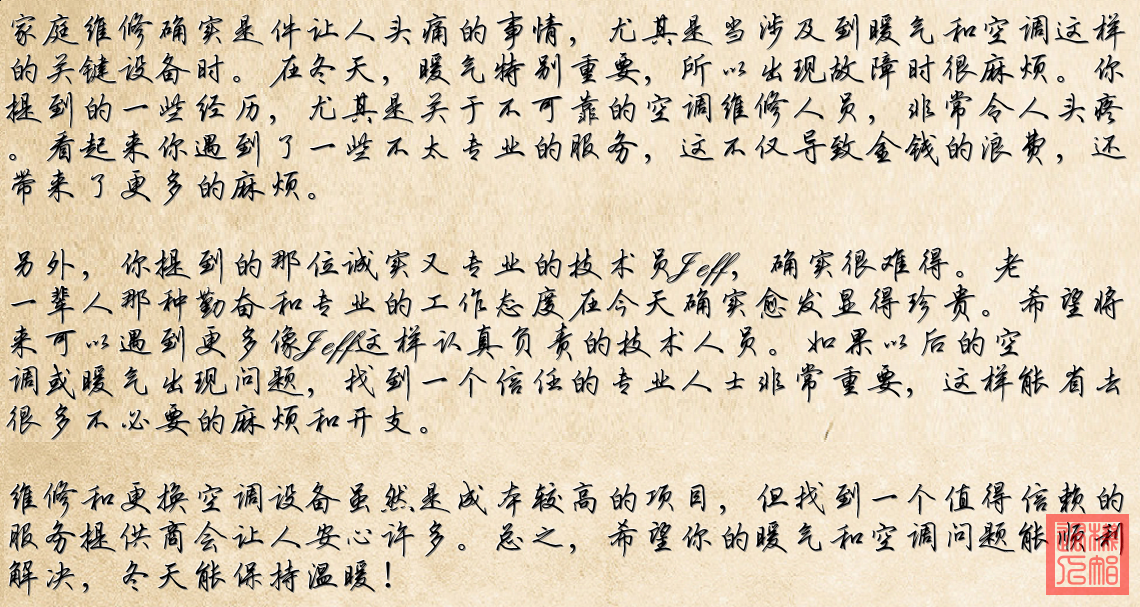 家庭维修确实是件让人头痛的事情，尤其是当涉及到暖气和空调这样
的关键设备时。在冬天，暖气特别重要，所以出现故障时很麻烦。你
提到的一些经历，尤其是关于不可靠的空调维修人员，非常令人头疼
。看起来你遇到了一些不太专业的服务，这不仅导致金钱的浪费，还
带来了更多的麻烦。
另外，你提到的那位诚实又专业的技术员Jeff，确实很难得。老
一辈人那种勤奋和专业的工作态度在今天确实愈发显得珍贵。希望将
来可以遇到更多像Jeff这样认真负责的技术人员。如果以后的空
调或暖气出现问题，找到一个信任的专业人士非常重要，这样能省去
很多不必要的麻烦和开支。
维修和更换空调设备虽然是成本较高的项目，但找到一个值得信赖的
服务提供商会让人安心许多。总之，希望你的暖气和空调问题能顺利
解决，冬天能保持温暖！